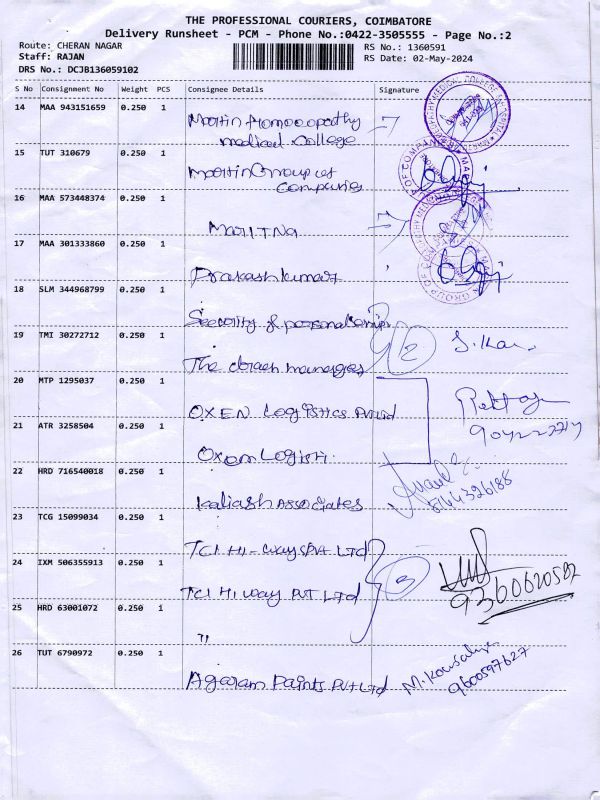 THE PROFESSIONAL COURIERS, COIMBATORE
Delivery Runsheet - PCM - Phone No.:0422-3505555 - Page No.:2
Route: CHERAN NAGAR
RS No.: 1360591
Staff: RAJAN
RS Date: 02-May-2024
DRS No.: DCJB136059102
S No Consignment No Weight PCS Consignee Details Signature
14 MAA 943151659 0.250 1
Martin Homoeopathy
medical College
15 TUT 310679 0.250 1
Martin Group of
Companies
16 MAA 573448374 0.250 1
17 MAA 301333860 0.250 1
Prakash kumar
18 SLM 344968799 0.250 1
Security &
19 TMI 30272712 0.250 1
2
The manager
20 MTP 1295037 0.250 1
OXEN Logistics Pvt Ltd
21 ATR 3258504 0.250 1
Oxen Logisti
22 HRD 716540018 0.250 1
Kailash Associates
23 TCG 15099034 0.250 1
TCI HI-ways Pvt LTD
24 IXM 506355913 0.250 1
3
TCI HI way PVT LTD
9360620592
25 HRD 63001072 0.250 1
"
26 TUT 6790972 0.250 1
Agaram Paints PVT Ltd
M. Kousalya
9600597627